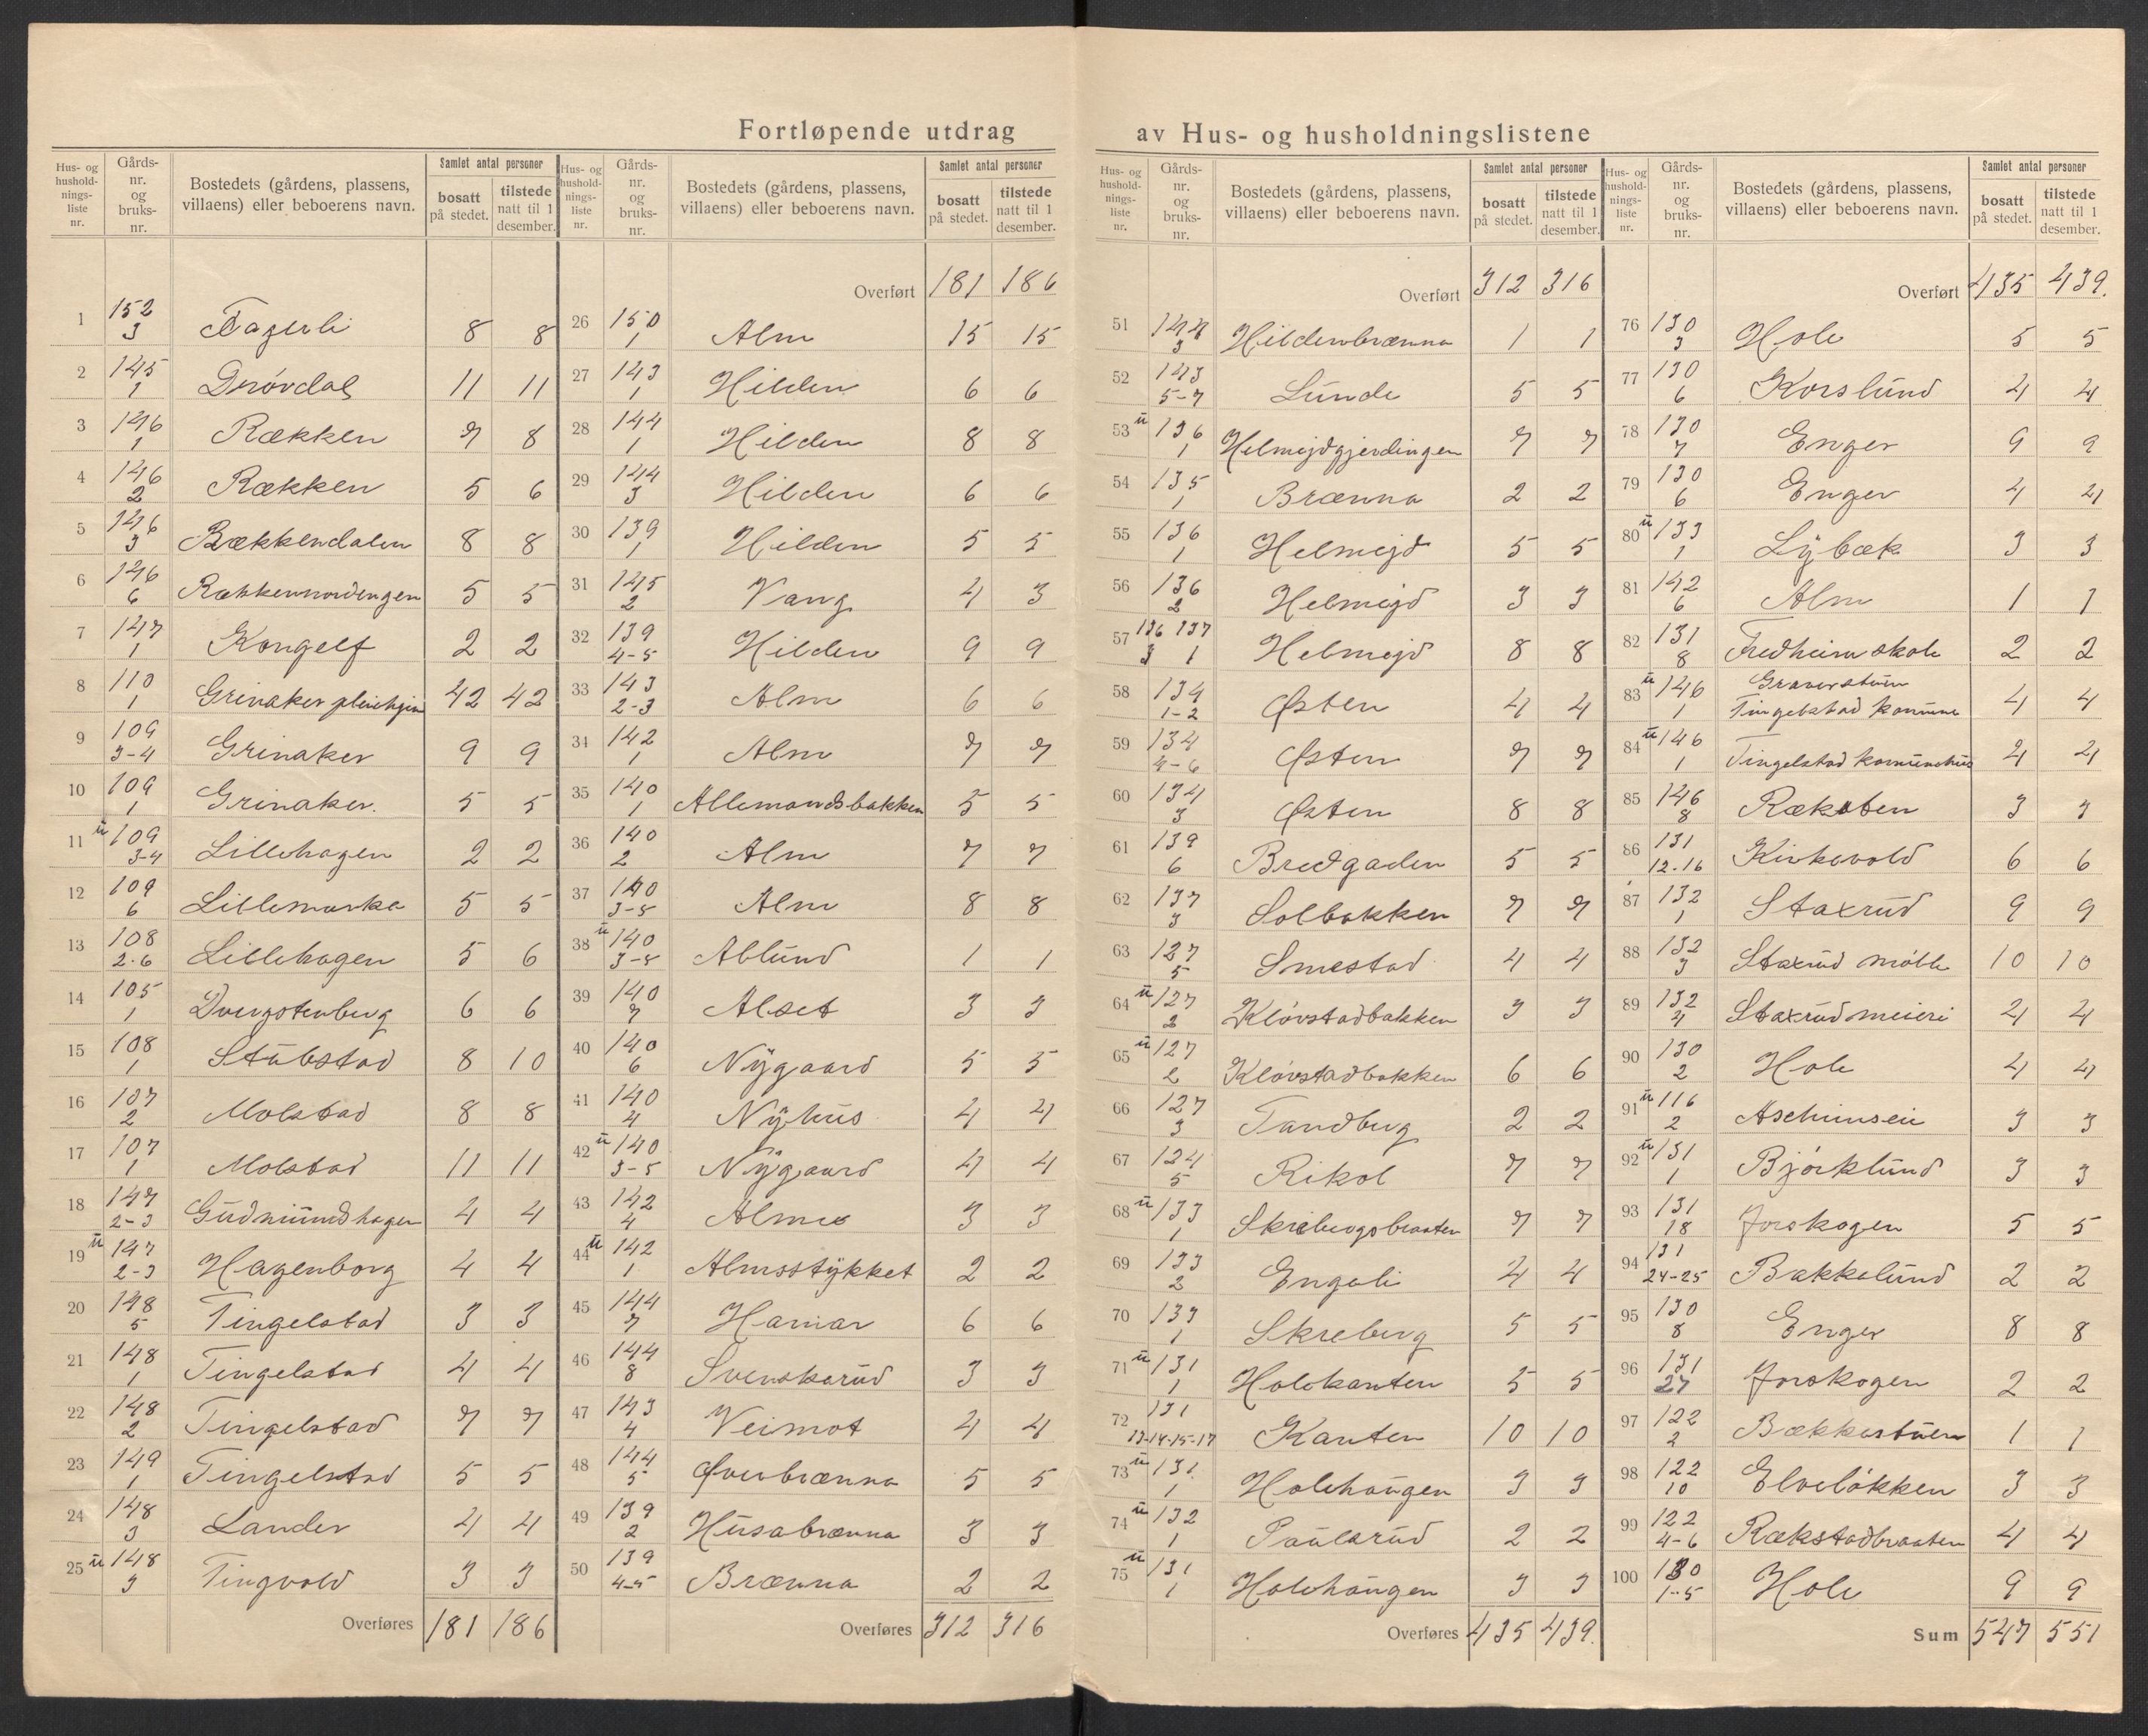 Fortløpende utdrag av Hus- og husholdningslistene
Hus- og husholdnings-liste nr. Gårds-nr. og bruks-nr. Bostedets (gårdens, plassens, villaens) eller beboerens navn. Samlet antal personer bosatt på stedet. tilstede natt til 1 desember.
1 152 3 Fagerli 8 8
2 145 1 Drøvdal 11 11
3 146 1 Rækken 7 8
4 146 2 Rækken 5 6
5 146 3 Bækkendalen 8 8
6 146 6 Rækkennordengen 5 5
7 147 1 Kongelf 2 2
8 110 1 Grinaker pleiehjem 42 42
9 109 3-4 Grinaker 9 9
10 109 1 Grinaker. 5 5
11 ü 109 3-4 Lillehagen 2 2
12 109 6 Lillemarka 5 5
13 108 2.6 Lillehagen 5 6
14 105 1 Dvergstenberg 6 6
15 108 1 Stübstad 8 10
16 107 2 Molstad 8 8
17 107 1 Molstad 11 11
18 147 2-3 Gudmündhagen 4 4
19 ü 147 2-3 Hagenborg 4 4
20 148 5 Tingelstad 3 3
21 148 1 Tingelstad 4 4
22 148 2 Tingelstad 7 7
23 149 1 Tingelstad 5 5
24 148 3 Lander 4 4
25 ü 148 3 Tingvold 3 3
Overføres 181 186
Hus- og husholdnings-liste nr. Gårds-nr. og bruks-nr. Bostedets (gårdens, plassens, villaens) eller beboerens navn. Samlet antal personer bosatt på stedet. tilstede natt til 1 desember.
Overført 181 186
26 150 1 Alm 15 15
27 143 1 Hilden 6 6
28 144 1 Hilden 8 8
29 144 3 Hilden 6 6
30 139 1 Hilden 5 5
31 145 2 Vang 4 3
32 139 4-5 Hilden 9 9
33 143 2-3 Alm 6 6
34 142 1 Alm 7 7
35 140 1 Allemandsbakken 5 5
36 140 2 Alm 7 7
37 140 3-5 Alm 8 8
38 ü 140 3-5 Ablünd 1 1
39 140 7 Alset 3 3
40 140 6 Nÿgaard 5 5
41 140 4 Nÿhüs 4 4
42 ü 140 3-5 Nÿgaard 4 4
43 142 4 Almes 3 3
44 ü 142 1 Almsstÿkket 2 2
45 144 7 Hamar 6 6
46 144 8 Svensksrüd 3 3
47 143 4 Veimot 4 4
48 144 5 Øverbrænna 5 5
49 139 2 Hüsabrænna 3 3
50 139 4-5 Brænna 2 2
Overføres 312 316
Hus- og husholdnings-liste nr. Gårds-nr. og bruks-nr. Bostedets (gårdens, plassens, villaens) eller beboerens navn. Samlet antal personer bosatt på stedet. tilstede natt til 1 desember.
Overført 312 316
51 144 3 Hildenbrænna 1 1
52 143 5-7 Lünde 5 5
53 ü 136 1 Helmejdgjerdingen 7 7
54 135 1 Brænna 2 2
55 136 1 Helmejd 5 5
56 136 2 Helmejd 3 3
57 136 137 3 1 Helmejd 8 8
58 134 1-2 Østen 4 4
59 134 4-6 Østen 7 7
60 134 3 Østen 8 8
61 139 6 Bredgaden 5 5
62 137 3 Solbakken 7 7
63 127 5 Smestad 4 4
64 ü 127 2 Kløvstadbakken 3 3
65 ü 127 2 Kløvstadbakken 6 6
66 127 3 Tandberg 2 2
67 124 5 Rikol 7 7
68 ü 133 1 Skrebergsbraaten 7 7
69 133 2 Engeli 4 4
70 133 1 Skreberg 5 5
71 ü 131 1 Holekanten 5 5
72 131 13-14-15-17 Kanten 10 10
73 ü 131 1 Holehaugen 3 3
74 ü 132 1 Paülsrüd 2 2
75 ü 131 1 Holehaugen 3 3
Overføres 435 439.
Hus- og husholdnings-liste nr. Gårds-nr. og bruks-nr. Bostedets (gårdens, plassens, villaens) eller beboerens navn. Samlet antal personer bosatt på stedet. tilstede natt til 1 desember.
Overført 435 439.
76 130 3 Hole 5 5
77 130 6 Korslünd 4 4
78 130 7 Enger 9 9
79 130 6 Enger 4 4
80 ü 133 1 Lÿbæk 3 3
81 142 6 Alm 1 1
82 131 8 Fredheim skole 2 2
83 ü 146 1 Graverstuen Tingelstad komüne 4 4
84 ü 146 1 Tingelstad komünehüs 4 4
85 146 8 Ræksten 3 3
86 131 12.16 Kirkevold 6 6
87 132 1 Staxrüd 9 9
88 132 3 Staxrüd mølle 10 10
89 132 4 Staxrüd meieri 4 4
90 130 2 Hole 4 4
91 ü 116 2 Aschimseie 3 3
92 ü 131 1 Bjørklünd 3 3
93 131 18 Jorskogen 5 5
94 131 24-25 Bakkelünd 2 2
95 130 8 Enger 8 8
96 131 27 Jorskogen 2 2
97 122 2 Bækkestüen 1 1
98 122 10 Elveløkken 3 3
99 122 4-6 Rækstadbraaten 4 4
100 130 1-5 Hole 9 9
Sum 547 551